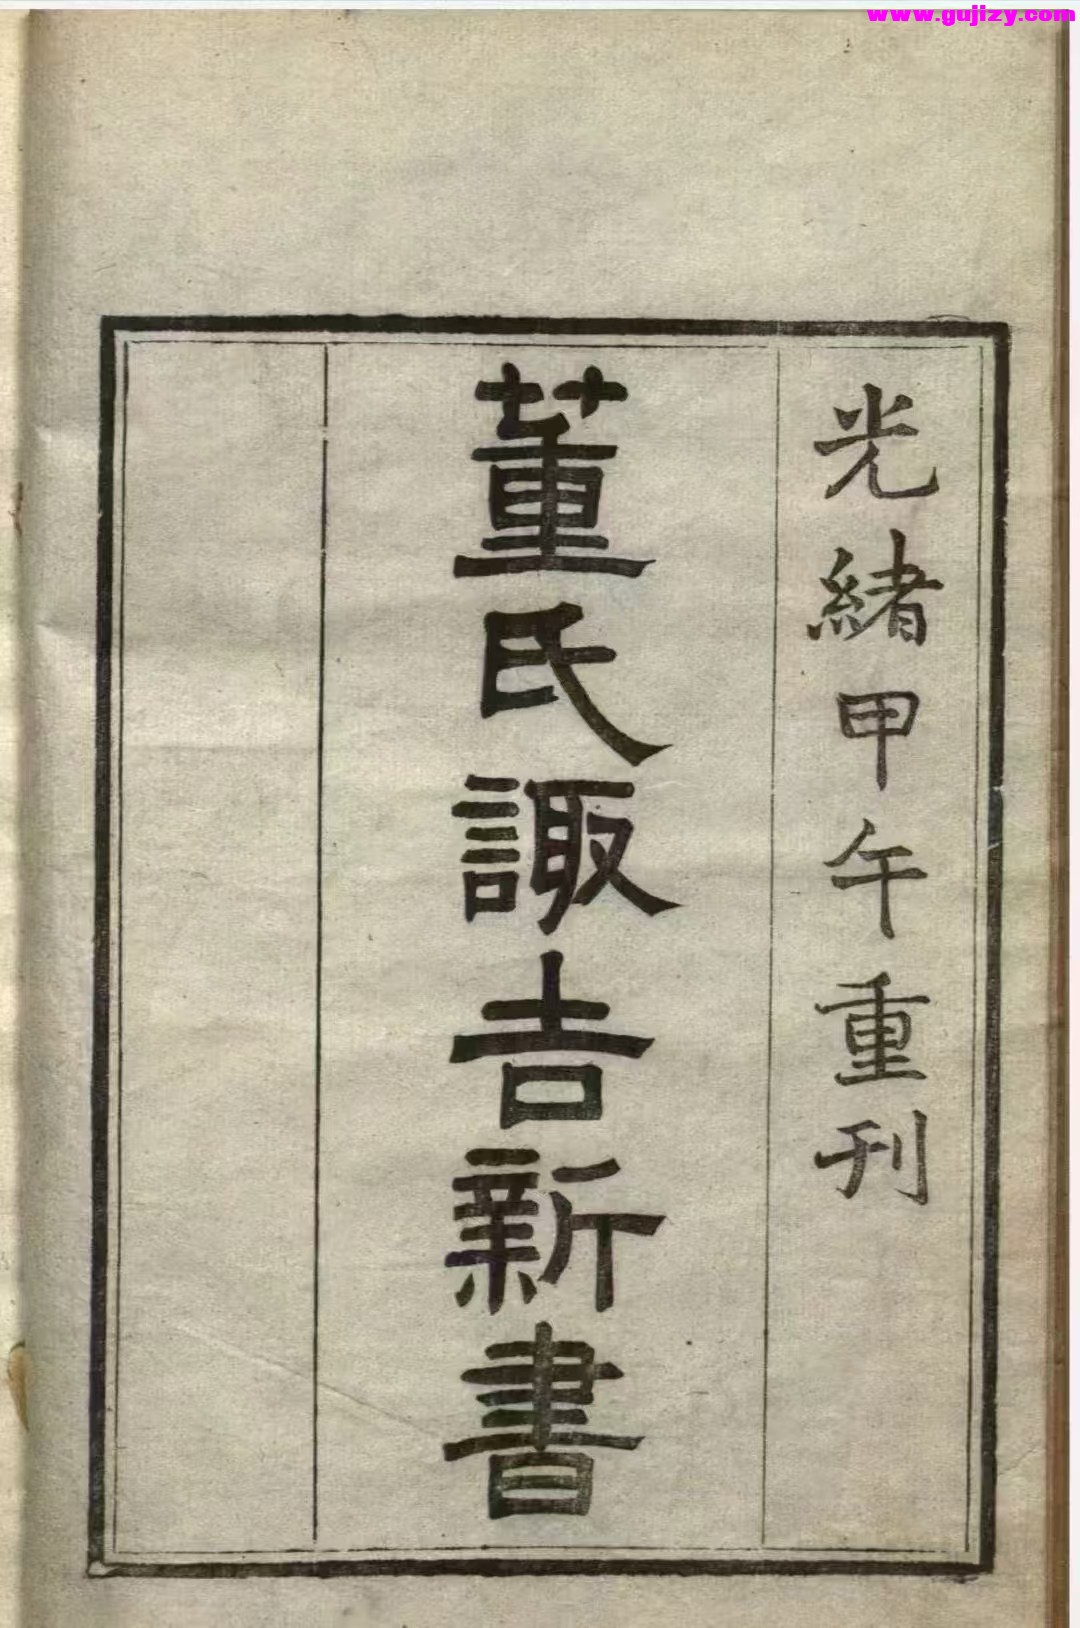 www.gujizy.com
光緒甲午重刊
董氏諏吉新書